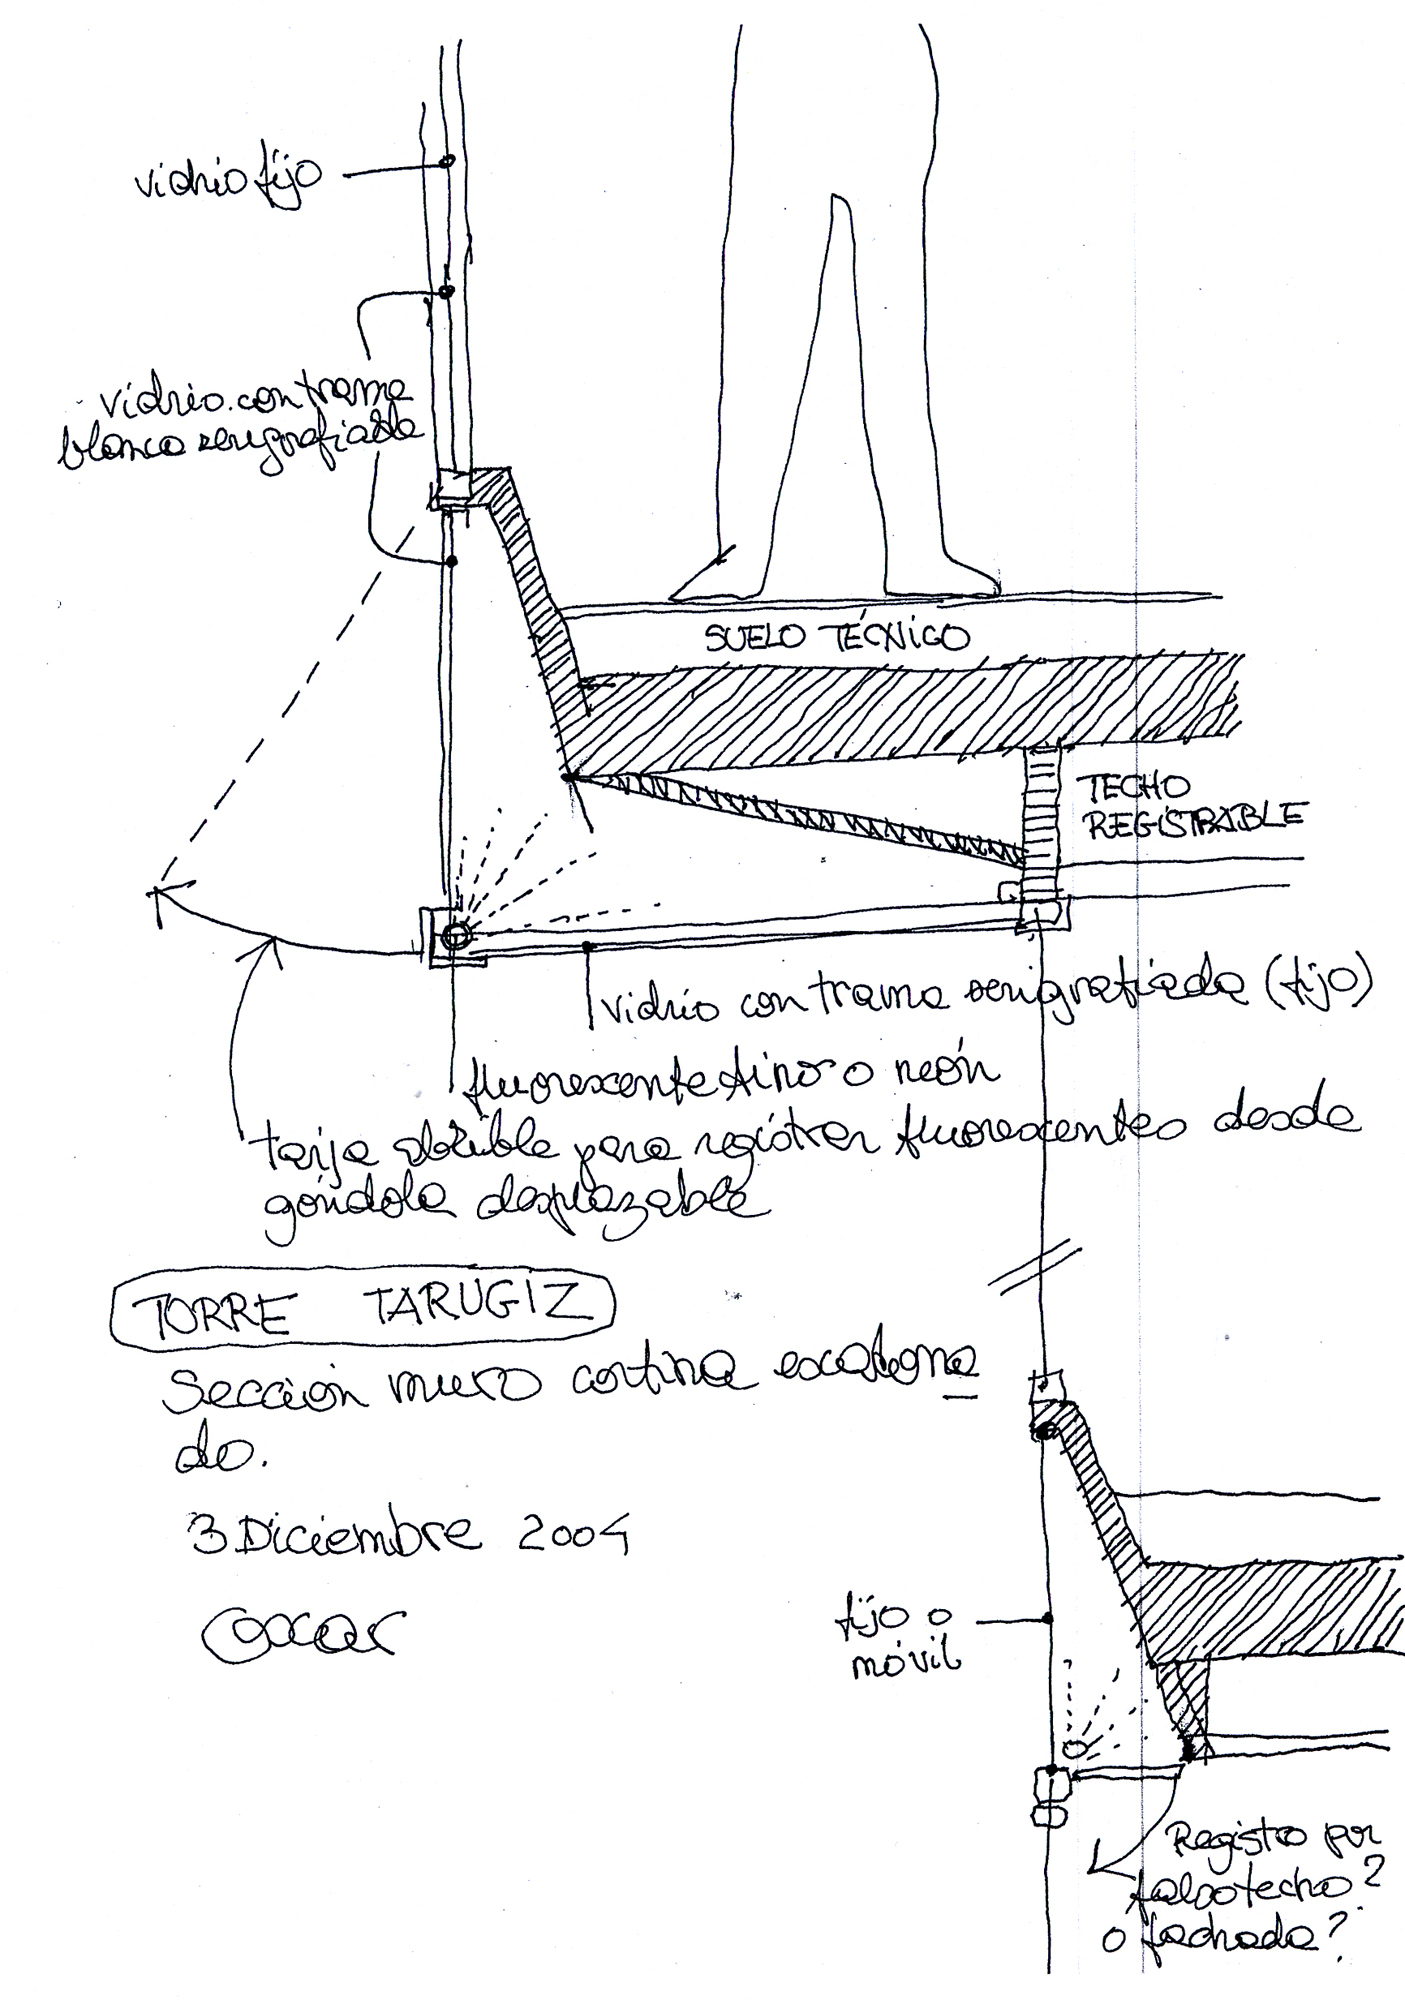 vidrio fijo
vidrio con trama
blanca serigrafiada
SUELO TÉCNICO
TECHO
REGISTRABLE
vidrio con trama serigrafiada (fijo)
fluorescente fino o neón
tarja abrible para registrar fluorescentes desde
góndola desplazable
TORRE TARUGIZ
Sección muro cortina escalona
do.
3 Diciembre 2004
Oscar
fijo o
móvil
Registro por
falso techo?
o fachada?